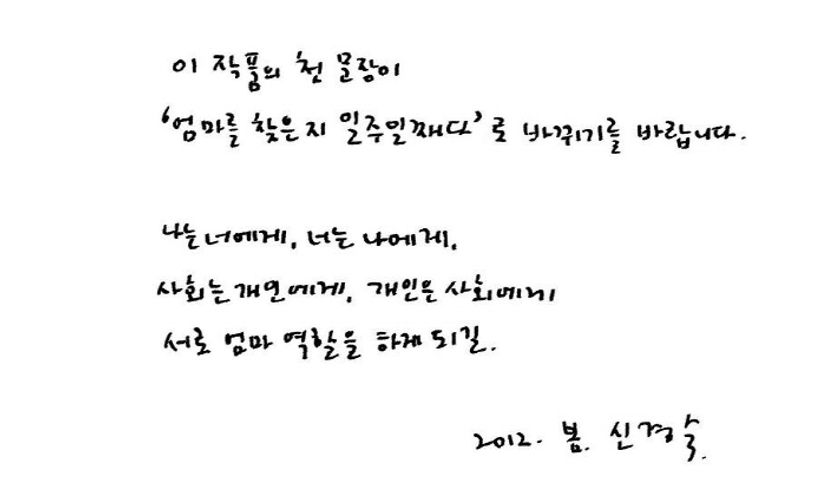 이 작품의 첫 문장이
'엄마를 찾은지 일주일째다'로 바뀌기를 바랍니다.
나는 너에게, 너는 나에게,
사회는 개인에게, 개인은 사회에게
서로 엄마 역할을 하게 되길.
2012. 봄. 신경숙.